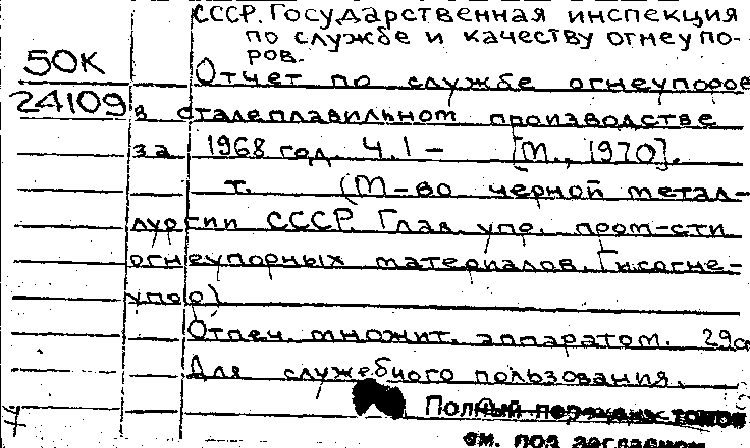 СССР. Государственная инспекция
по службе и качеству огнеупо-
ров.
50К
Отчет по службе огнеупоров
24109
в сталеплавильном производстве
за 1968 год. Ч. 1 – [М., 1970].
т. (М-во черной метал-
лургии СССР. Глав. упр. пром-сти
огнеупорных материалов. Гисогне-
упор)
Отпеч. множит. аппаратом. 29см
Для служебного пользования.
Полный перечень томов
см. под заглавием